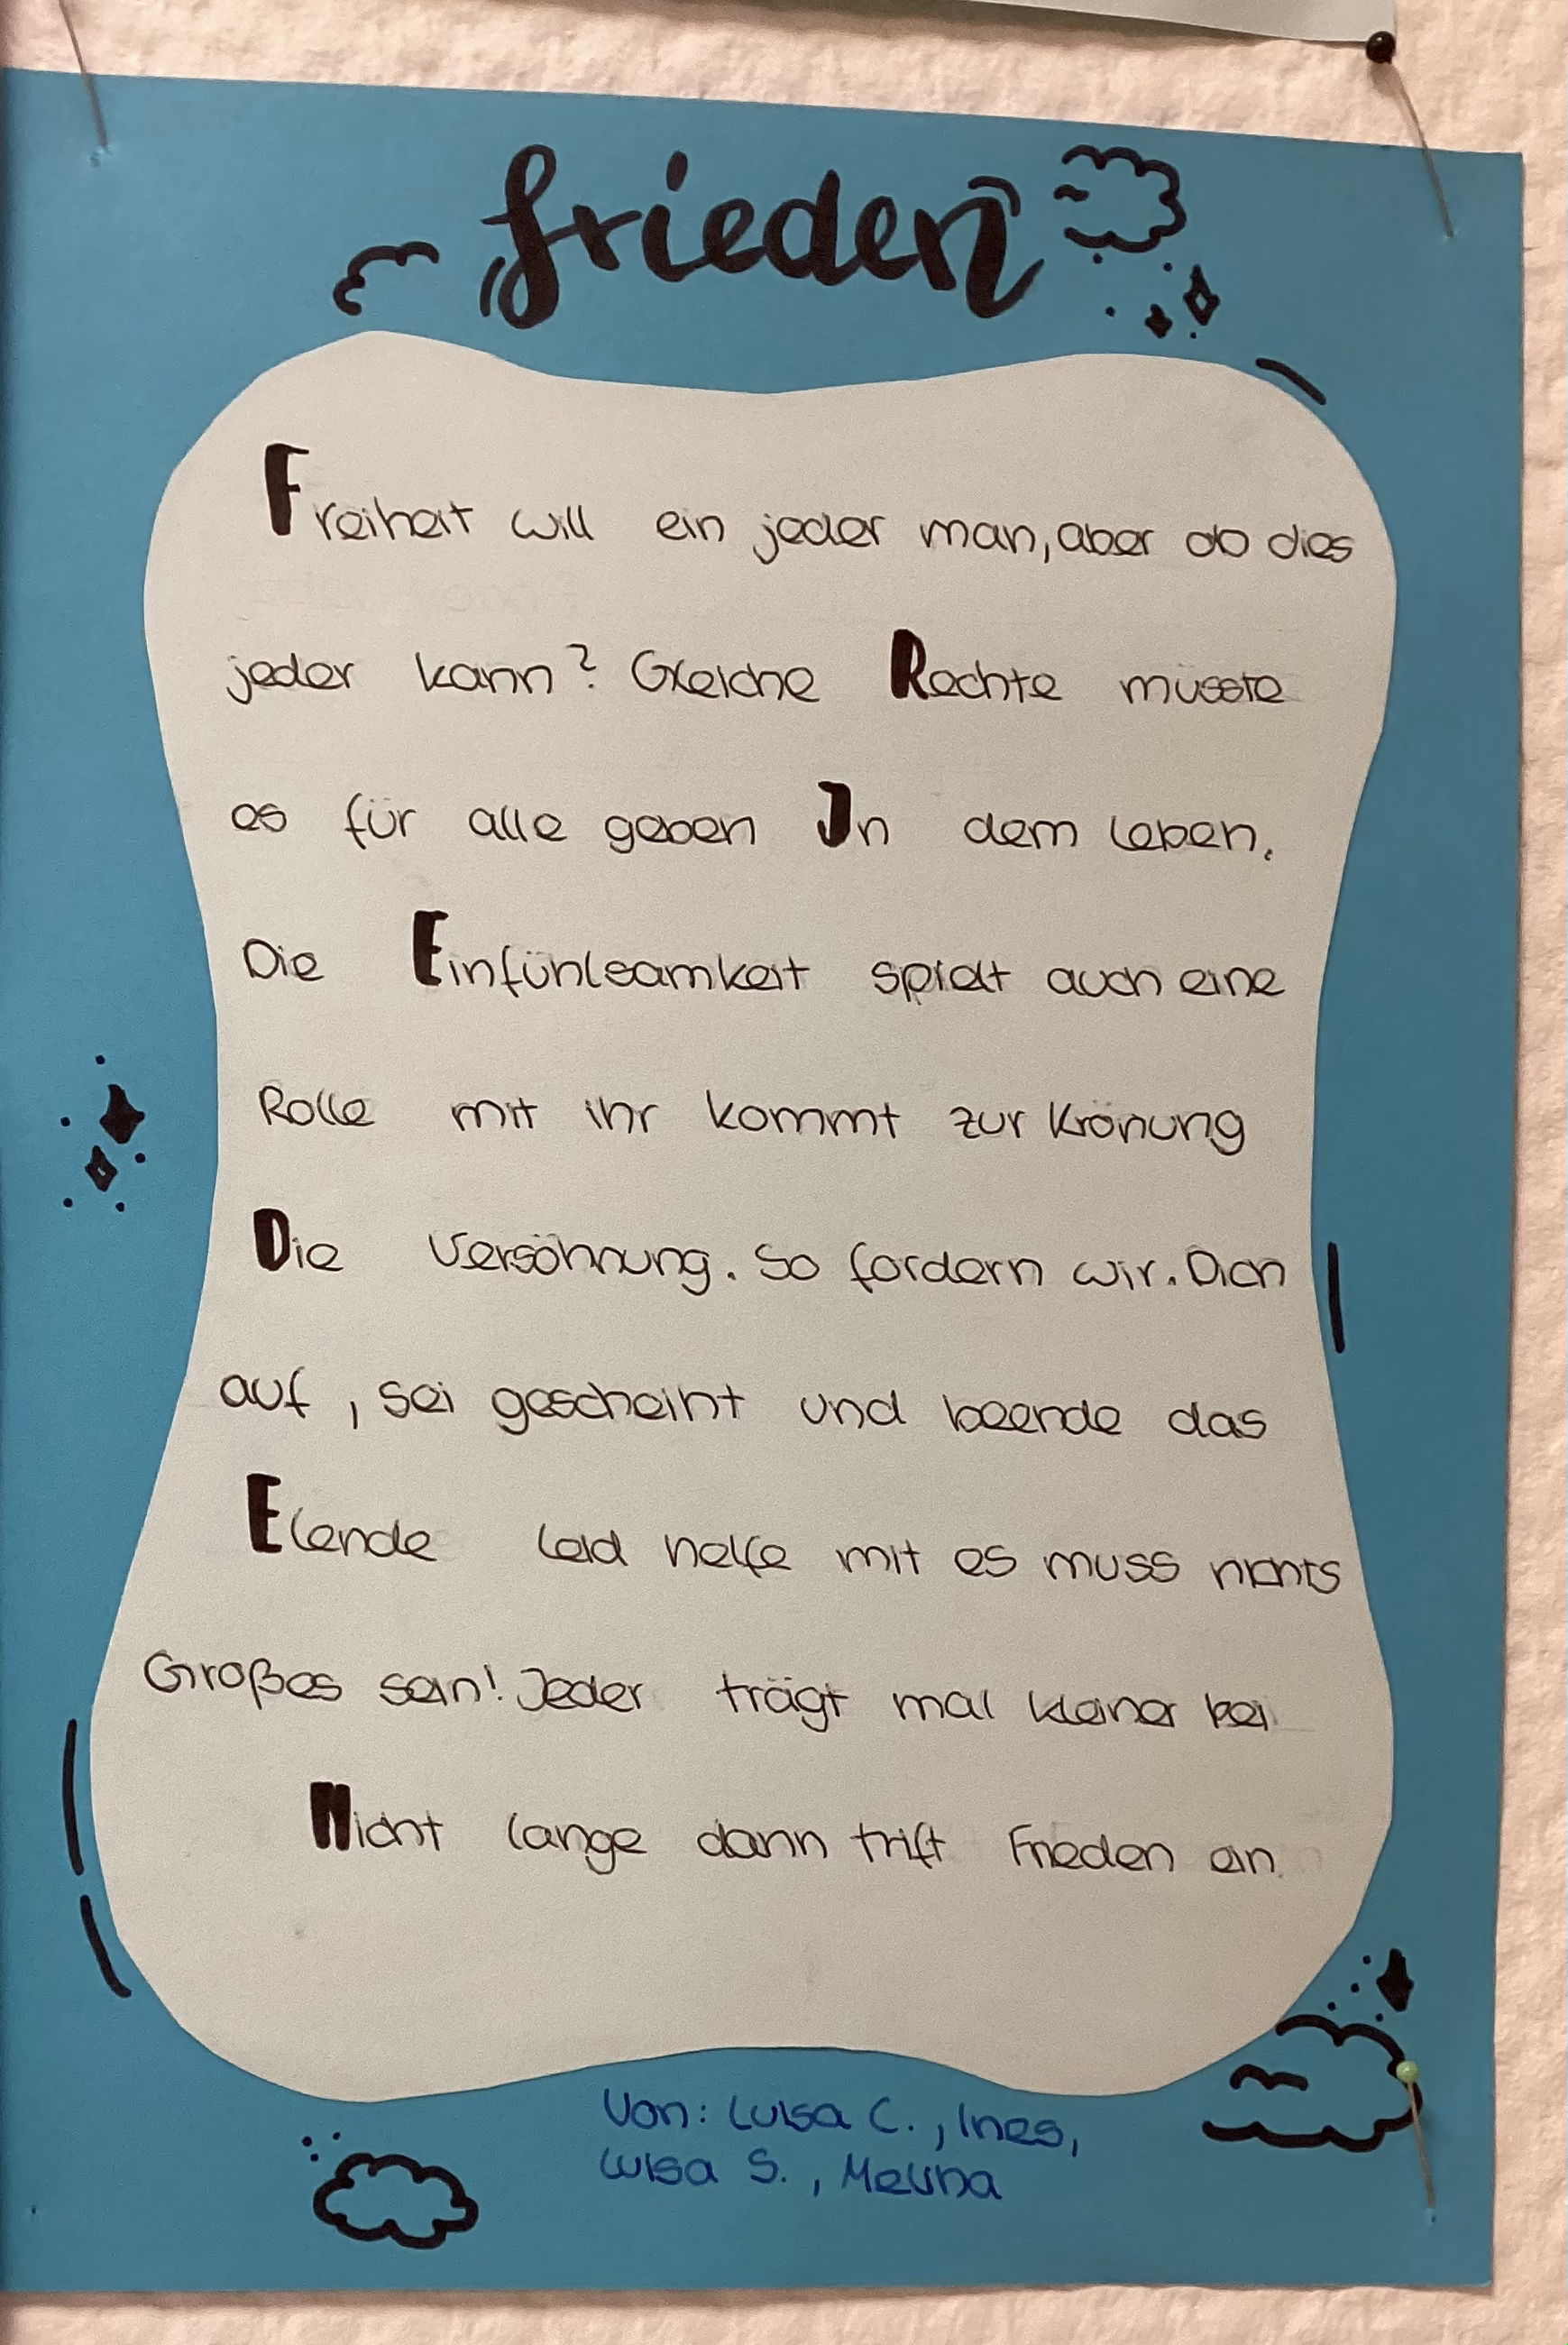 frieden
Freiheit will ein jeder man, aber ob dies
jeder kann? Gleiche Rechte müsste
es für alle geben In dem Leben.
Die Einfühlsamkeit spielt auch eine
Rolle mit ihr kommt zur Krönung
Die Versöhnung. So fordern wir. Dich
auf, sei gescheint und beende das
Elende Leid helfe mit es muss nichts
Großes sein! Jeder trägt mal kleiner bei
Nicht lange dann trift Frieden ein
Von: Luisa C., Ines,
Luisa S., Melina